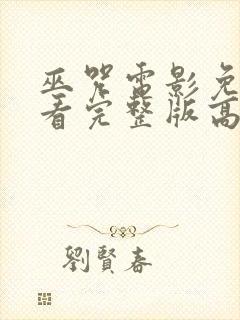 巫咒电影免
看完整版高
劉賢春